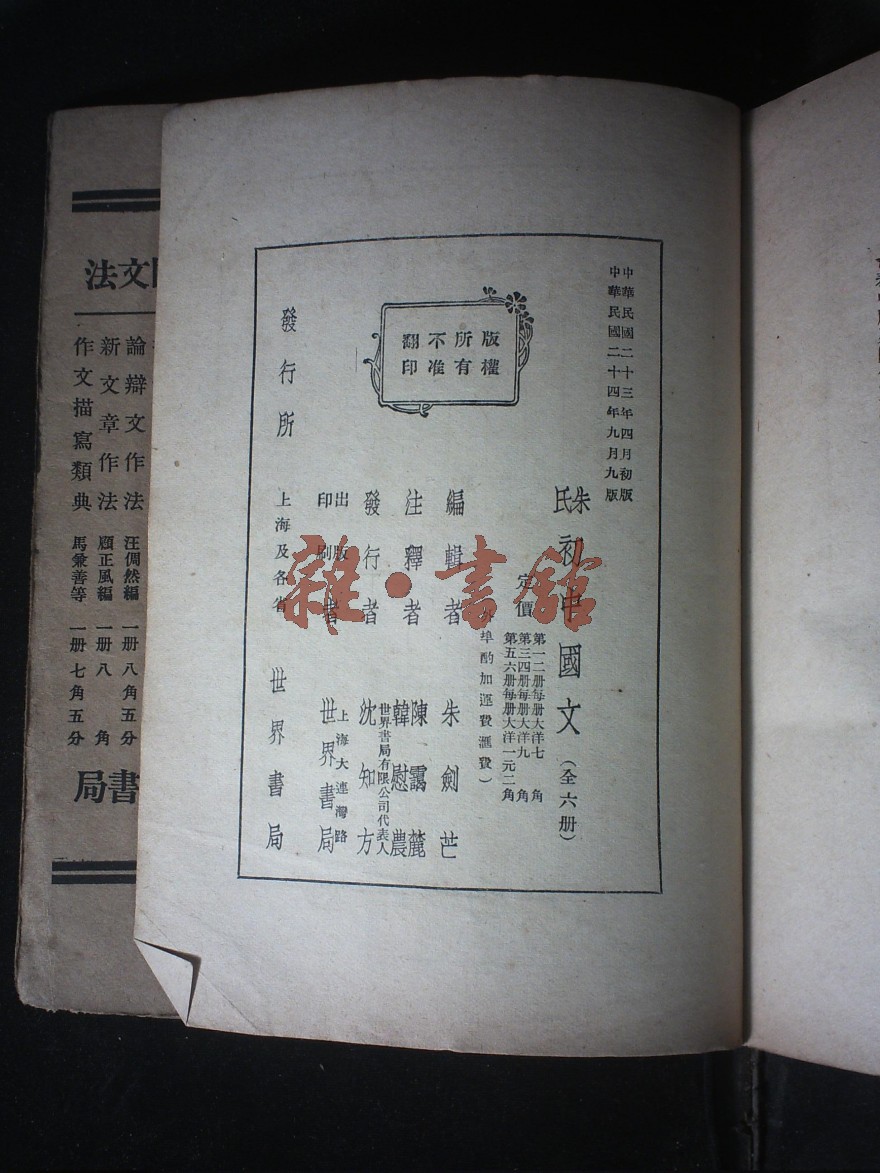 中華民國二十三年四月初版
中華民國二十四年九月九版
朱氏初中國文(全六册)
定價
第一二册每册大洋七角
第三四册每册大洋九角
第五六册每册大洋一元二角
埠酌加運費滙費)
編輯者 朱劍芒
注釋者 陳靄麓 韓慰農
發行者 世界書局有限公司代表人 沈知方
出版印刷者 上海大連灣路 世界書局
發行所 上海及各省 世界書局
版權所有不准翻印
雜·書館
文法
論辯文作法 汪倜然編 一册八角五分
新文章作法 顧正風編 一册八角
作文描寫類典 馬兼善等 一册七角五分
書局